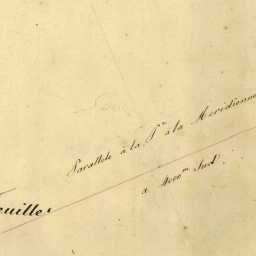 Parallele à la Pre à la Meridienne
à 4000m Sud.
euilles